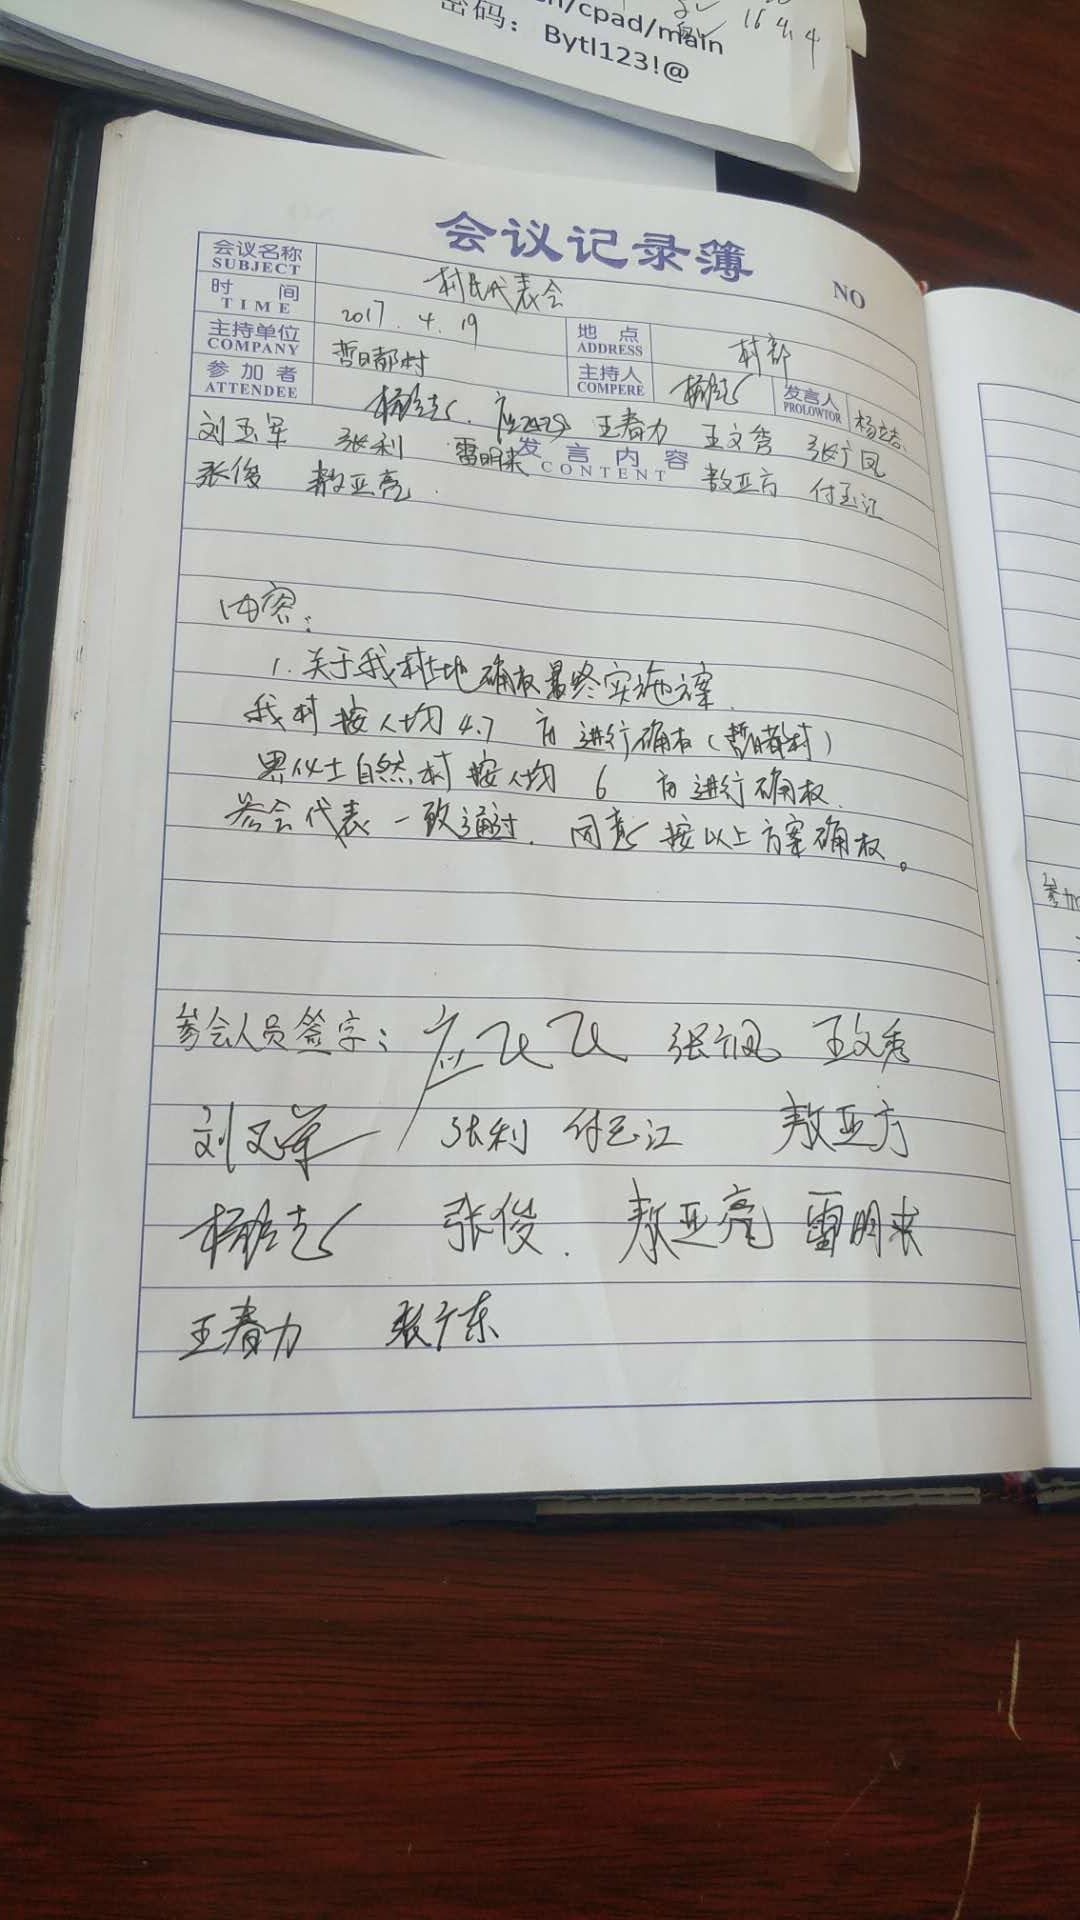 n/cpad/main
密码：Bytl123!@
16 4.4
会议记录簿
NO
会议名称 SUBJECT 村民代表会
时间 TIME 2017.4.19 地点 ADDRESS 村部
主持单位 COMPANY 哲日都村 主持人 COMPERE 发言人 PROLOWTOR
参加者 ATTENDEE 王春力 王文秀 张广凤
刘玉军 张利 雷明来 发言内容 CONTENT 敖亚方 付玉江
张俊 敖亚亮.
内容：
1.关于我村土地确权最终实施方案.
我村按人均4.7亩进行确权(哲日都村)
自然村按人均6亩进行确权.
参会代表一致通过.同意按以上方案确权。
参会人员签字： 张广凤 王文秀
刘玉军 张利 付玉江 敖亚方
张俊. 敖亚亮 雷明来
王春力 张广东
参加